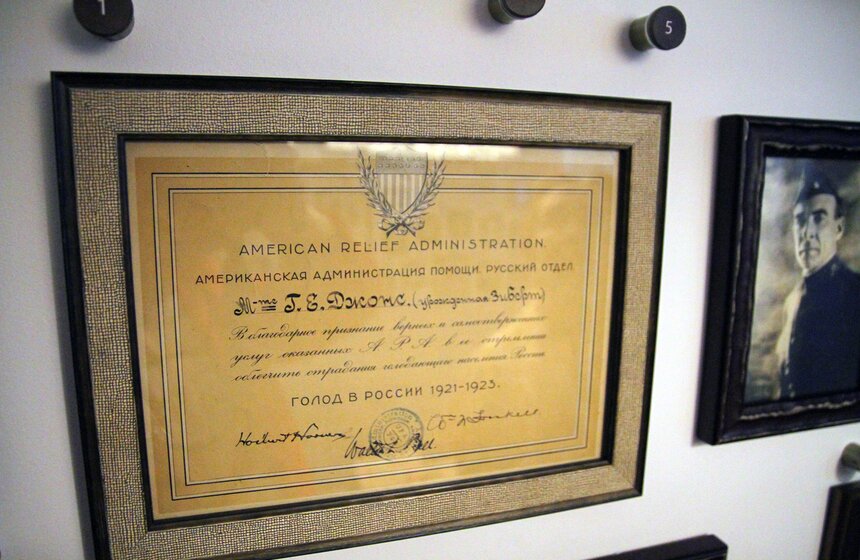 1
5
AMERICAN RELIEF ADMINISTRATION.
АМЕРИКАНСКАЯ АДМИНИСТРАЦИЯ ПОМОЩИ, РУССКИЙ ОТДЕЛ
М-me Г. Е. Джонс. (урожденная Зиберт)
В благодарное признание верных и самоотверженных
услуг оказанных А Р А в ее стремлении
облегчить страдания голодающего населения России
ГОЛОД В РОССИИ 1921-1923.
Herbert Hoover
Walter L. Bell.